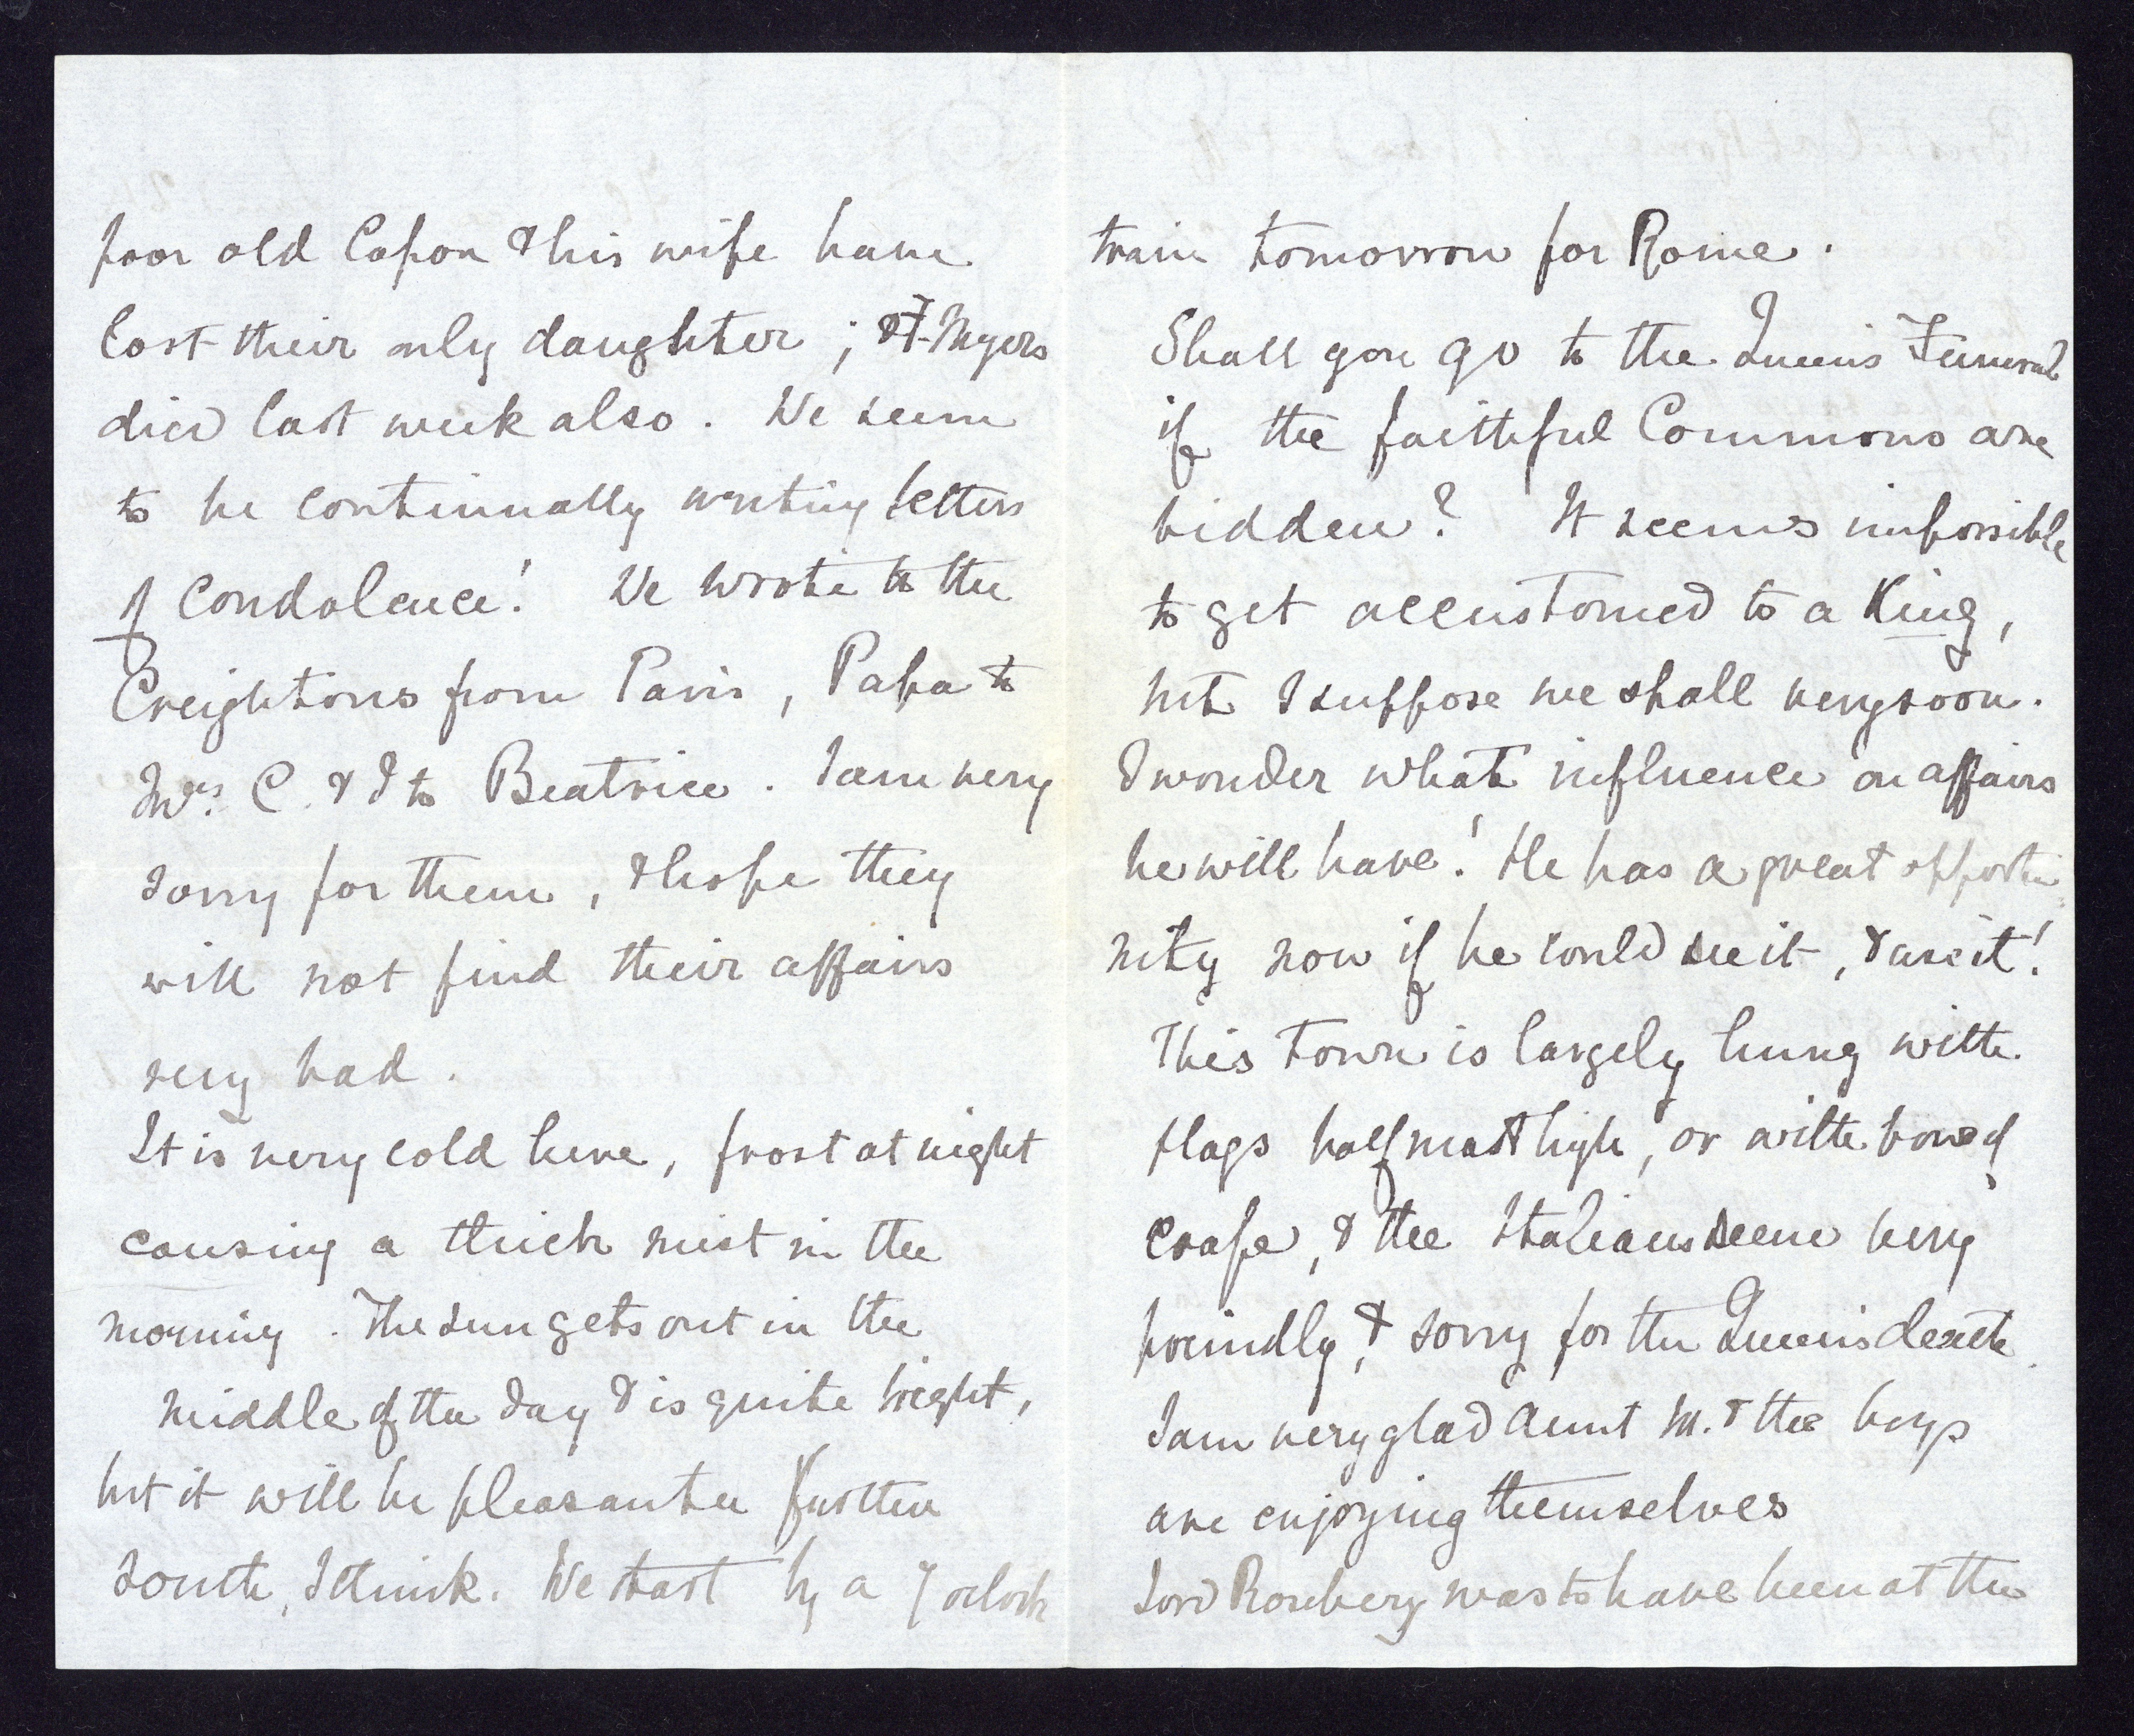 poor old Capon & his wife have
lost their only daughter ; & F. Myers
died last week also. We seem
to be continually writing letters
of Condolence! We wrote to the
Creightons from Paris, Papa to
Mrs. C. & I to Beatrice. I am very
sorry for them, & hope they
will not find their affairs
very bad.
It is very cold here, frost at night
causing a thick mist in the
morning. The sun gets out in the
middle of the day & is quite bright,
but it will be pleasanter further
south, I think. We start by a 7 oclock
train tomorrow for Rome.
Shall you go to the Queen's Funeral
if the faithful Commons are
bidden? It seems impossible
to get accustomed to a King,
but I suppose we shall very soon.
I wonder what influence on affairs
he will have! He has a great opportu
nity now if he could see it, & use it!
This town is largely hung with
flags half mast high, or with bows of
crape, & the Italians seem very
friendly, & sorry for the Queen's death.
I am very glad Aunt M. & the boys
are enjoying themselves
Lord Rosebery was to have been at the